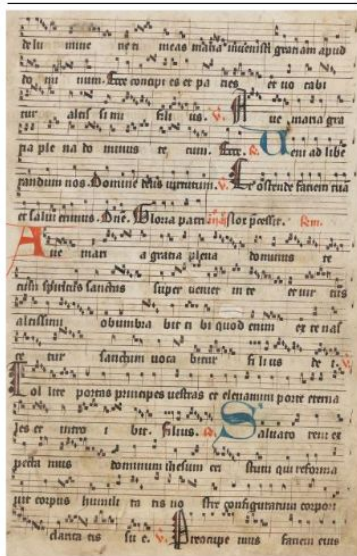 de lu mine ne ti meas maria invenisti gratiam apud
do mi num. Ecce concipi es et pa ries et vo cabi
tur altis si mi fili us. v. Aue maria gra
tia ple na do minus te cum. Ecce. Veni ad libe
randum nos. Domine deus virtutum. v. Et ostende faciem tua
et salui erimus. Dne. Gloria patri
Aue mari a gratia plena dominus te
cum spiritus sanctus super veniet in te et uir tus
altissimi obumbra bit ti bi quod enim ex te nas
ce tur sanctum uoca bitur fi li us de i. v.
Tol lite portas principes uestras et eleuamini porte eterna
les et intro i bit. filius. Saluato rem ex
pecta mus dominum ihesum cri stum qui reforma
uit corpus humili ta tis no stre configuratum corpori
clarita tis su e. v. Preoccupe mus faciem eius